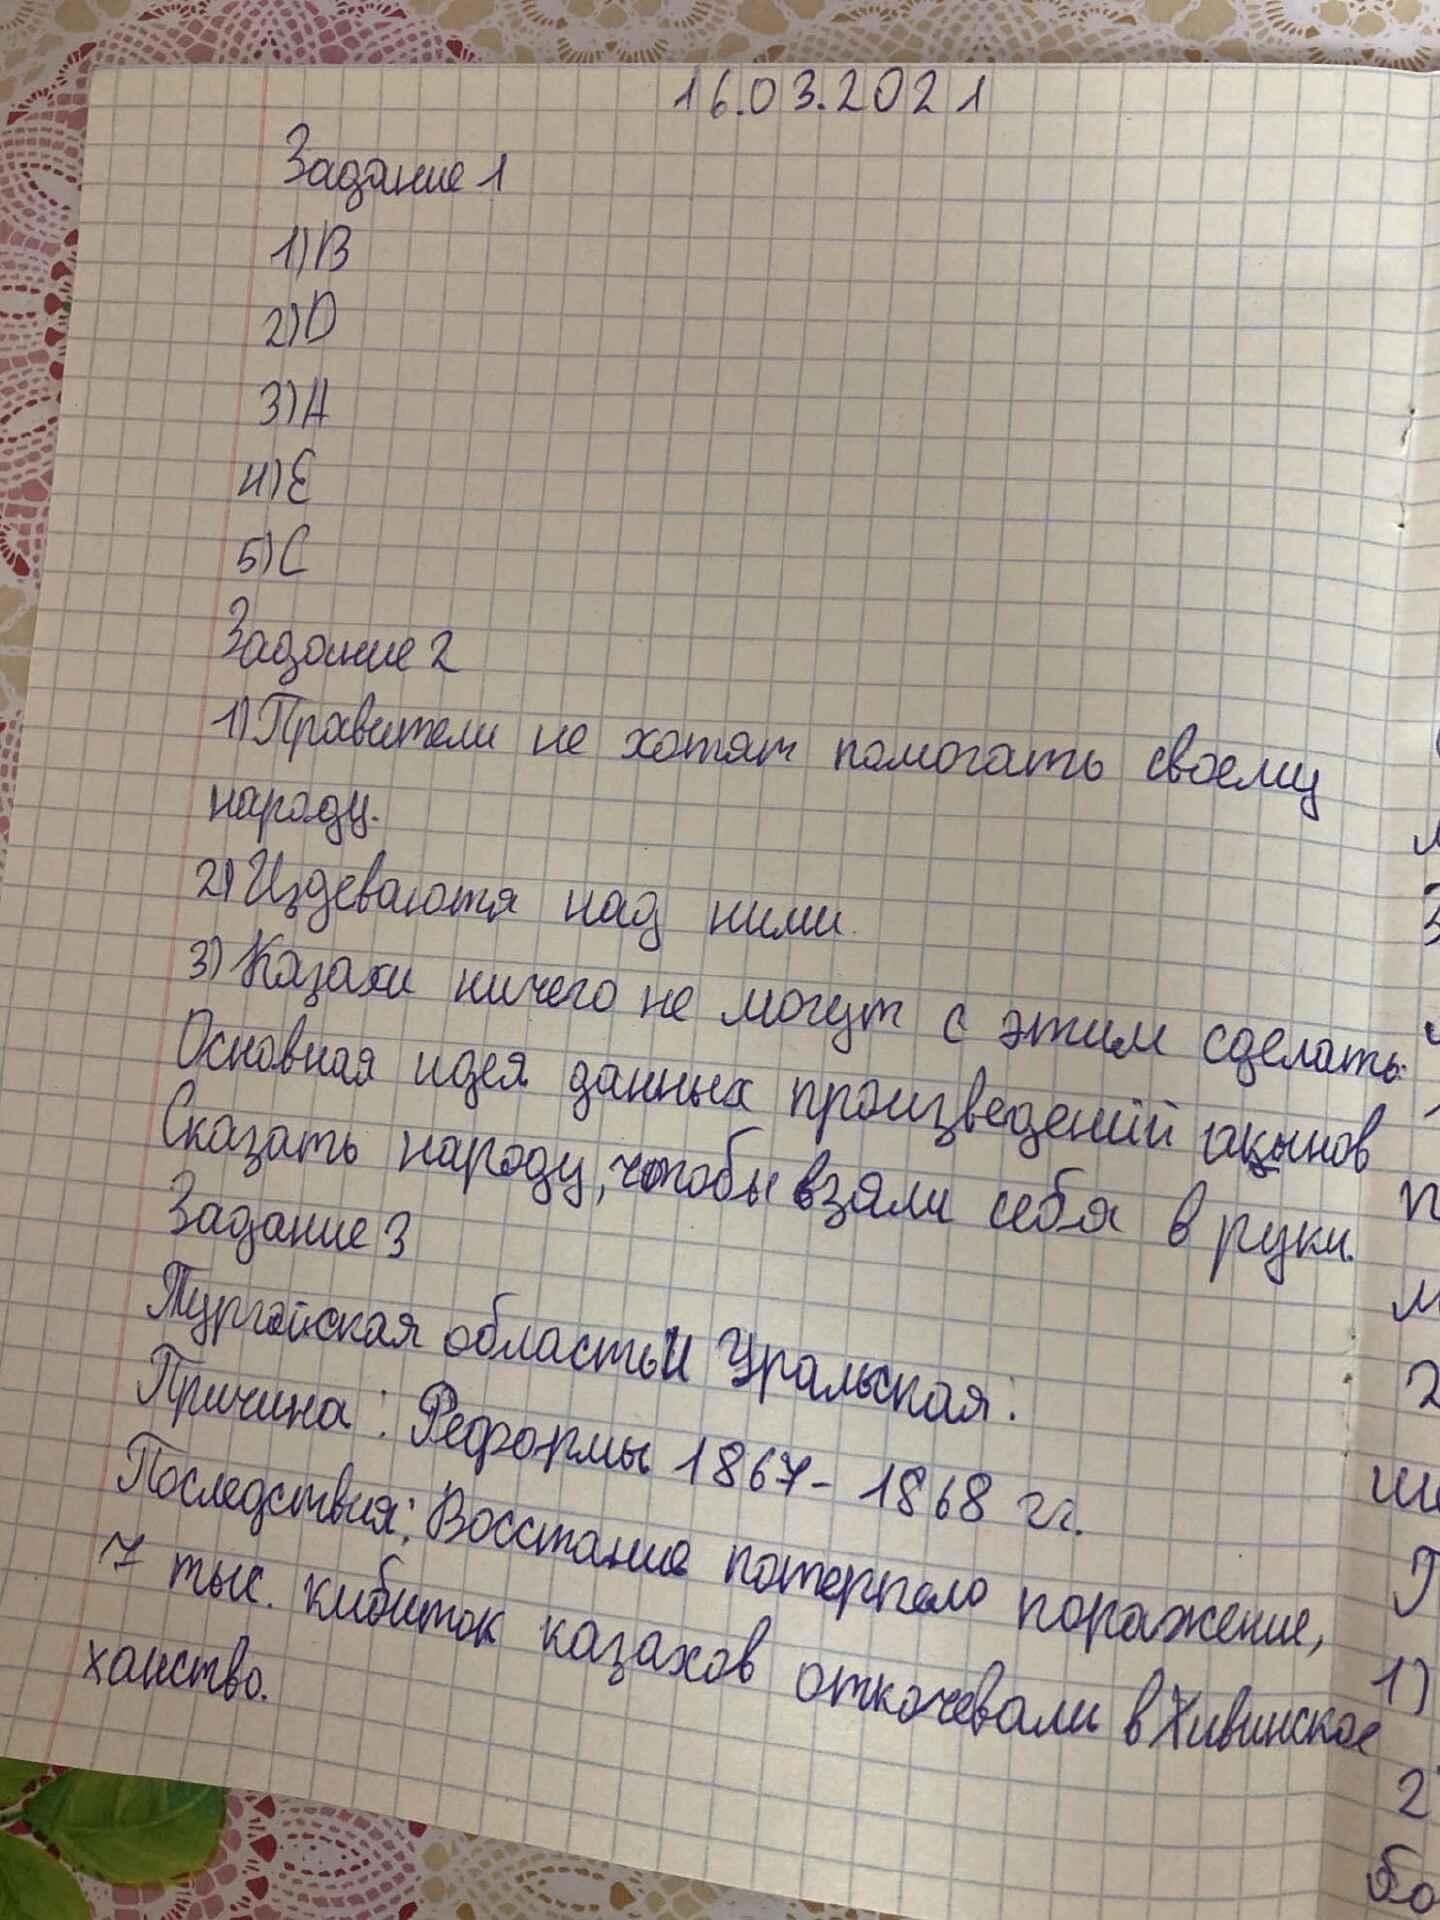 16.03.2021
Задание 1
1) B
2) D
3) A
4) E
5) C
Задание 2
1) Правители не хотят помогать своему
народу.
2) Издеваютя над ними.
3) Казахи ничего не могут с этим сделать.
Основная идея данных произведений акынов
Сказать народу, чтобы взяли себя в руки.
Задание 3
Тургайская область и Уральская:
Причина: Реформы 1867-1868 гг.
Последствия: Восстание потерпело поражение,
7 тыс. кибиток казахов откочевали в Хивинское
ханство.